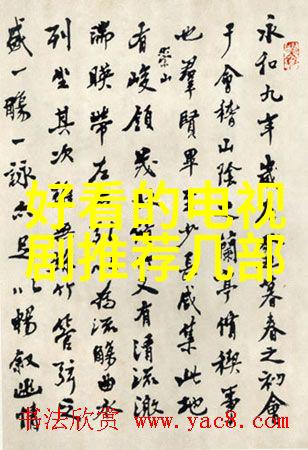 永和九年歲暮春之初會
于會稽山陰蘭亭脩稧事
也羣賢畢少長咸集此地
有崇山峻領茂竹又有清流激
湍暎帶左為流觴曲水
列坐其次竹管弦之
盛一觴一詠亦足以暢叙幽情
好看的电视
剧推荐几部
书法欣赏 www.yac8.com